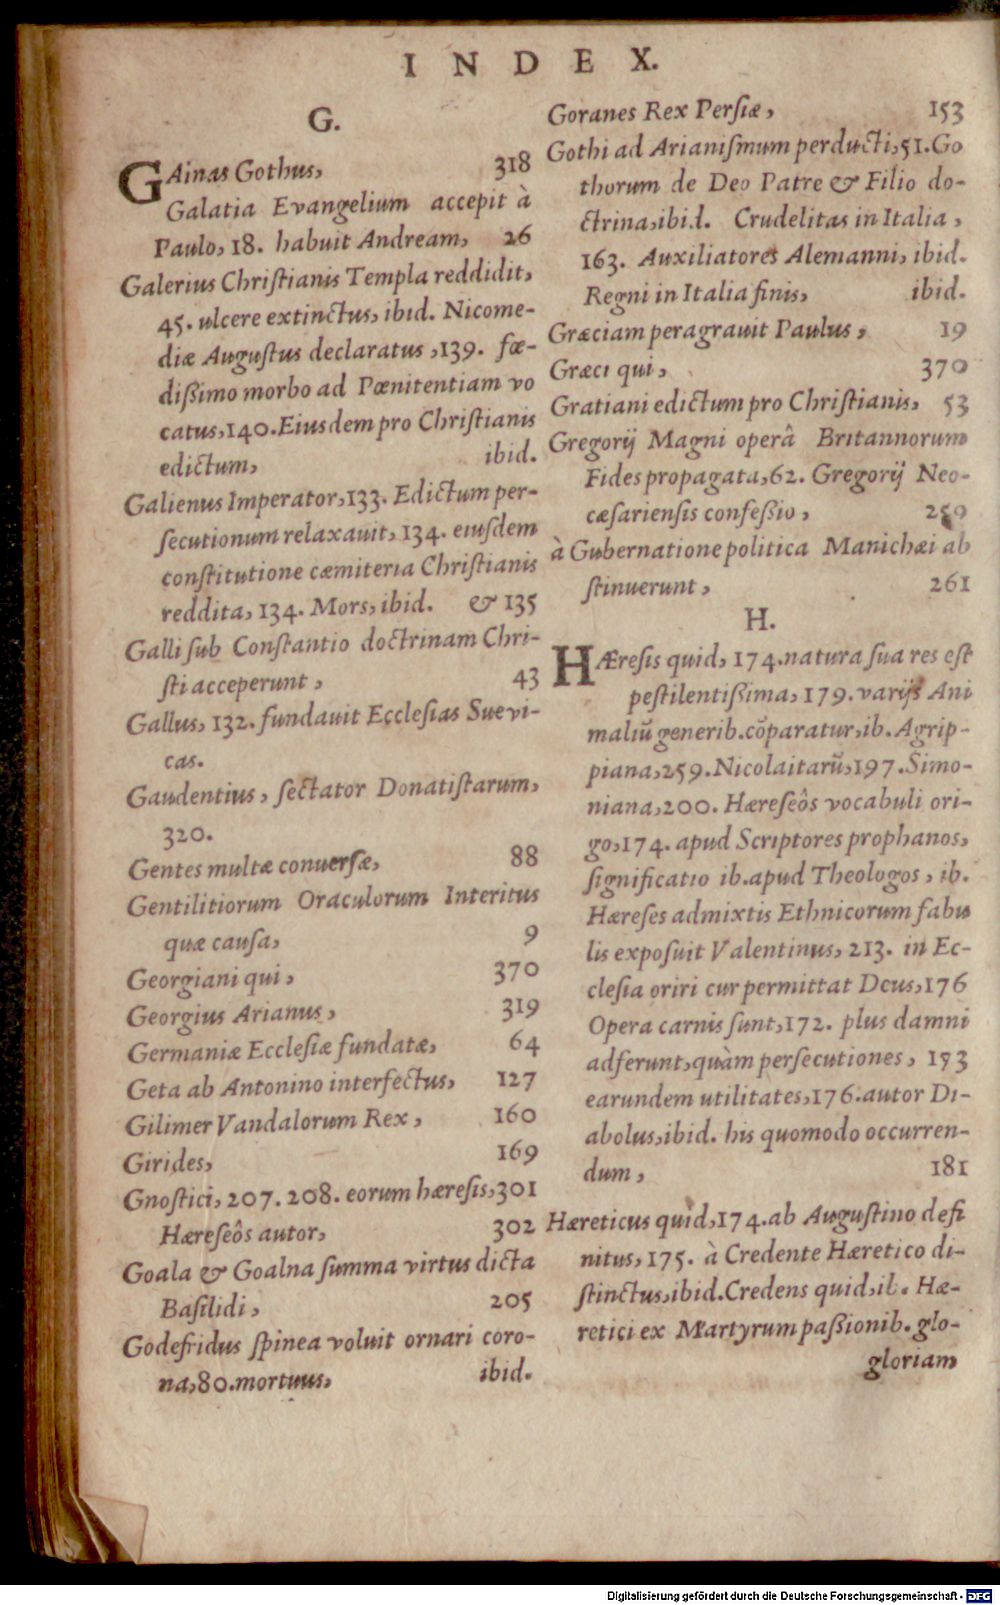 INDEX.
G.
GAinas Gothus, 318
Galatia Evangelium accepit à
Paulo, 18. habuit Andream, 26
Galerius Chriſtianis Templa reddidit,
45. ulcere extinctus, ibid. Nicome-
diæ Auguſtus declaratus, 139. fœ-
diſsimo morbo ad Pœnitentiam vo
catus, 140. Eiusdem pro Chriſtianis
edictum, ibid.
Galienus Imperator, 133. Edictum per-
ſecutionum relaxauit, 134. eiuſdem
conſtitutione cæmiteria Chriſtianis
reddita, 134. Mors, ibid. & 135
Galli ſub Conſtantio doctrinam Chri-
ſti acceperunt, 43
Gallus, 132. fundauit Eccleſias Suevi-
cas.
Gaudentius, ſectator Donatiſtarum,
320.
Gentes multæ conuerſæ, 88
Gentilitiorum Oraculorum Interitus
quæ cauſa, 9
Georgiani qui, 370
Georgius Arianus, 319
Germaniæ Eccleſiæ fundatæ, 64
Geta ab Antonino interfectus, 127
Gilimer Vandalorum Rex, 160
Girides, 169
Gnoſtici, 207. 208. eorum hæreſis, 301
Hæreſeôs autor, 302
Goala & Goalna ſumma virtus dicta
Baſilidi, 205
Godefridus ſpinea voluit ornari coro-
na, 80. mortuus, ibid.
Goranes Rex Perſiæ, 153
Gothi ad Arianiſmum perducti, 51. Go
thorum de Deo Patre & Filio do-
ctrina, ibid. Crudelitas in Italia,
163. Auxiliatores Alemanni, ibid.
Regni in Italia finis, ibid.
Græciam peragrauit Paulus, 19
Græci qui, 370
Gratiani edictum pro Chriſtianis, 53
Gregorij Magni operâ Britannorum
Fides propagata, 62. Gregorij Neo-
cæſarienſis confeſsio, 259
à Gubernatione politica Manichæi ab
ſtinuerunt, 261
H.
HÆreſis quid, 174. natura ſua res eſt
peſtilentiſsima, 179. varijs Ani
maliũ generib. cõparatur, ib. Agrip-
piana, 259. Nicolaitarũ, 197. Simo-
niana, 200. Hæreſeôs vocabuli ori-
go, 174. apud Scriptores prophanos,
ſignificatio ib. apud Theologos, ib.
Hæreſes admixtis Ethnicorum fabu
lis expoſuit Valentinus, 213. in Ec-
cleſia oriri cur permittat Deus, 176
Opera carnis ſunt, 172. plus damni
adferunt, quàm perſecutiones, 173
earundem utilitates, 176. autor Di-
abolus, ibid. his quomodo occurren-
dum, 181
Hæreticus quid, 174. ab Auguſtino defi
nitus, 175. à Credente Hæretico di-
ſtinctus, ibid. Credens quid, ib. Hæ-
retici ex Martyrum paſsionib. glo-
gloriam
Digitalisierung gefördert durch die Deutsche Forschungsgemeinschaft - DFG